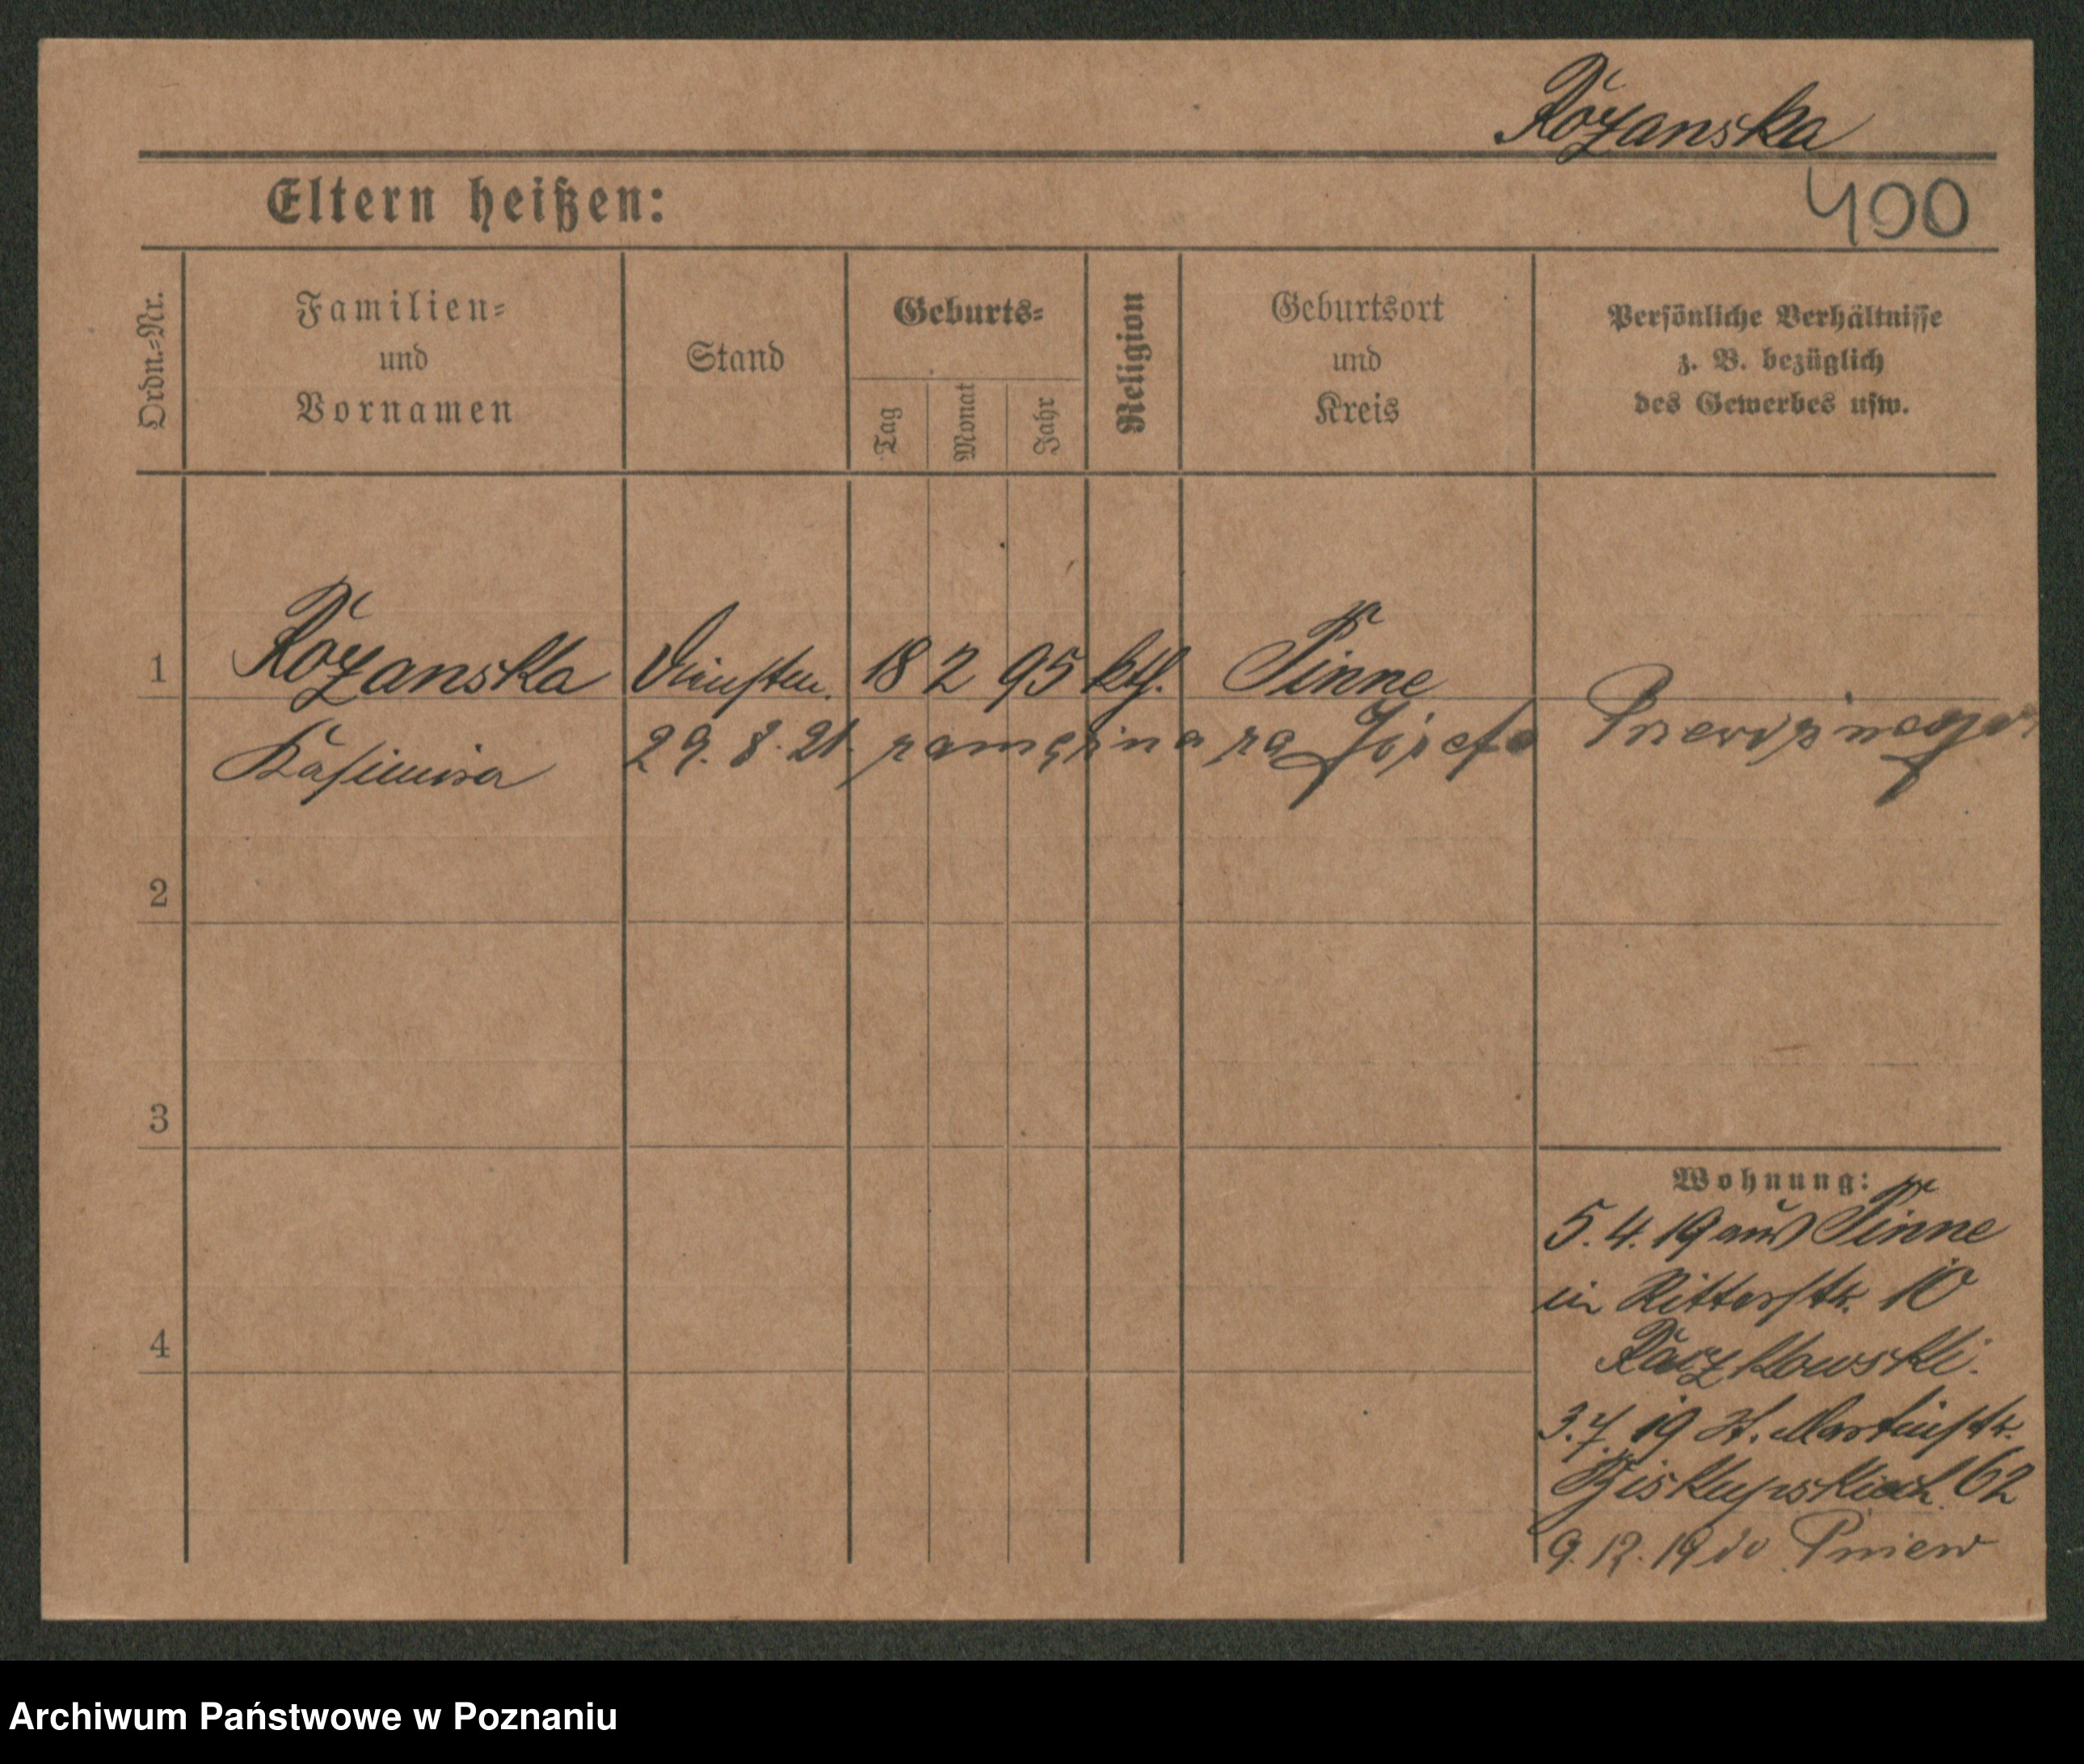 Rożanska
Eltern heißen:
400
Ordn.-Nr.
Familien-
und
Vornamen
Stand
Geburts-
Tag
Monat
Jahr
Religion
Geburtsort
und
Kreis
Persönliche Verhältnisse
z. B. bezüglich
des Gewerbes usw.
1 Rożanska 18 2 95 kth. Pinne
Kasimira 29. 8. 21. zamężna za Józefa
2
3
4
Wohnung:
5. 4. 19 aus Pinne
in Ritterstr. 10
Raczkowski.
3. 7. 19 St. Martinstr.
62
9. 12. 19 do Pniew
Archiwum Państwowe w Poznaniu